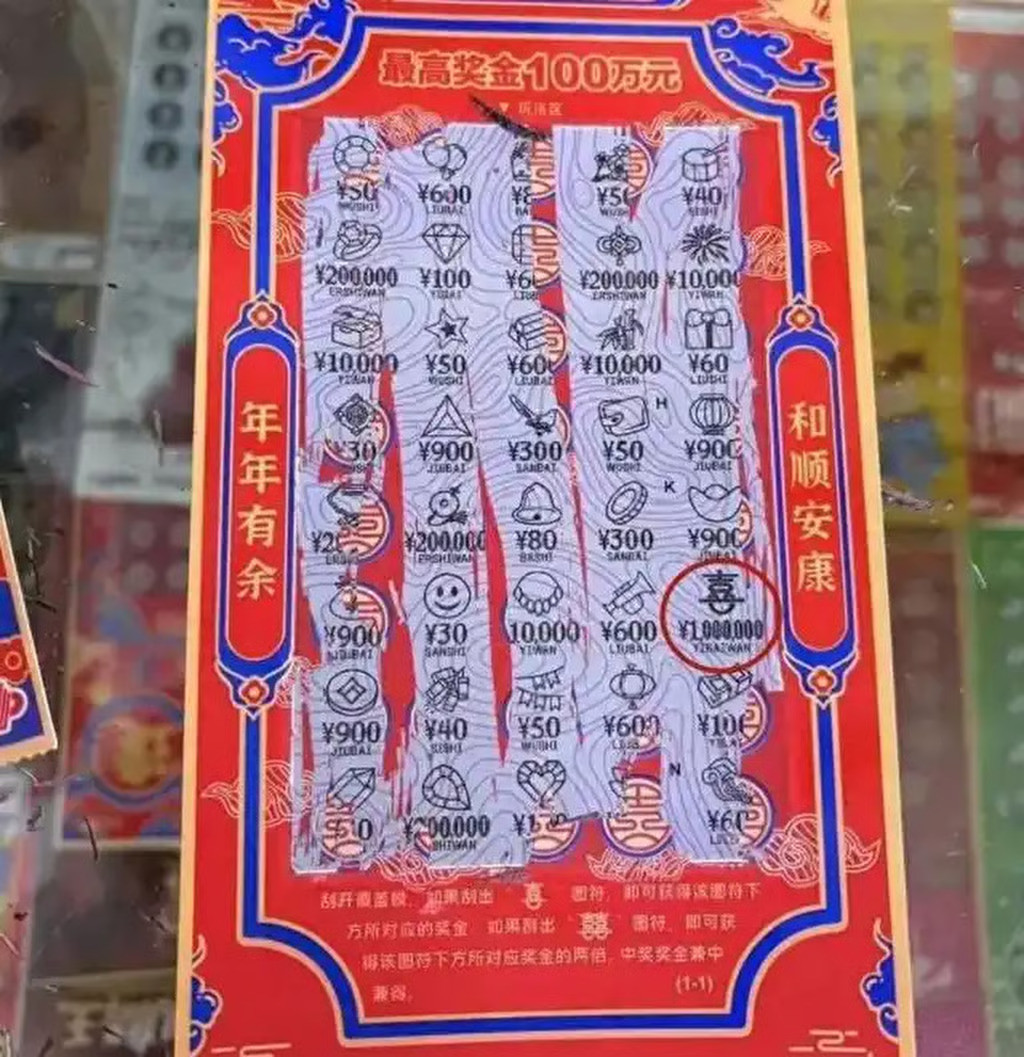 最高奖金100万元
▼ 玩法区
¥50 ¥600 ¥50 ¥40
WUSHI LIUBAI WUSHI SISHI
¥200,000 ¥100 ¥200,000 ¥10,000
ERSHIWAN YIBAI ERSHIWAN YIWAN
¥10,000 ¥50 ¥600 ¥10,000 ¥60
YIWAN WUSHI LIUBAI YIWAN LIUSHI
H
¥30 ¥900 ¥300 ¥50 ¥900
JIUBAI SANBAI WUSHI JIUBAI
K
¥200,000 ¥80 ¥300 ¥900
ERSHIWAN BASHI SANBAI JIUBAI
喜
¥900 ¥30 10,000 ¥600 ¥1,000,000
JIUBAI SANSHI YIWAN LIUBAI YIBAIWAN
¥900 ¥40 ¥50 ¥600 ¥100
JIUBAI SISHI WUSHI
N
¥200,000
SHIWAN
年年有余
和顺安康
刮开覆盖膜，如果刮出 喜 图符，即可获得该图符下
方所对应的奖金 如果刮出 囍 图符，即可获
得该图符下方所对应奖金的两倍。中奖奖金兼中
兼得。
(1-1)